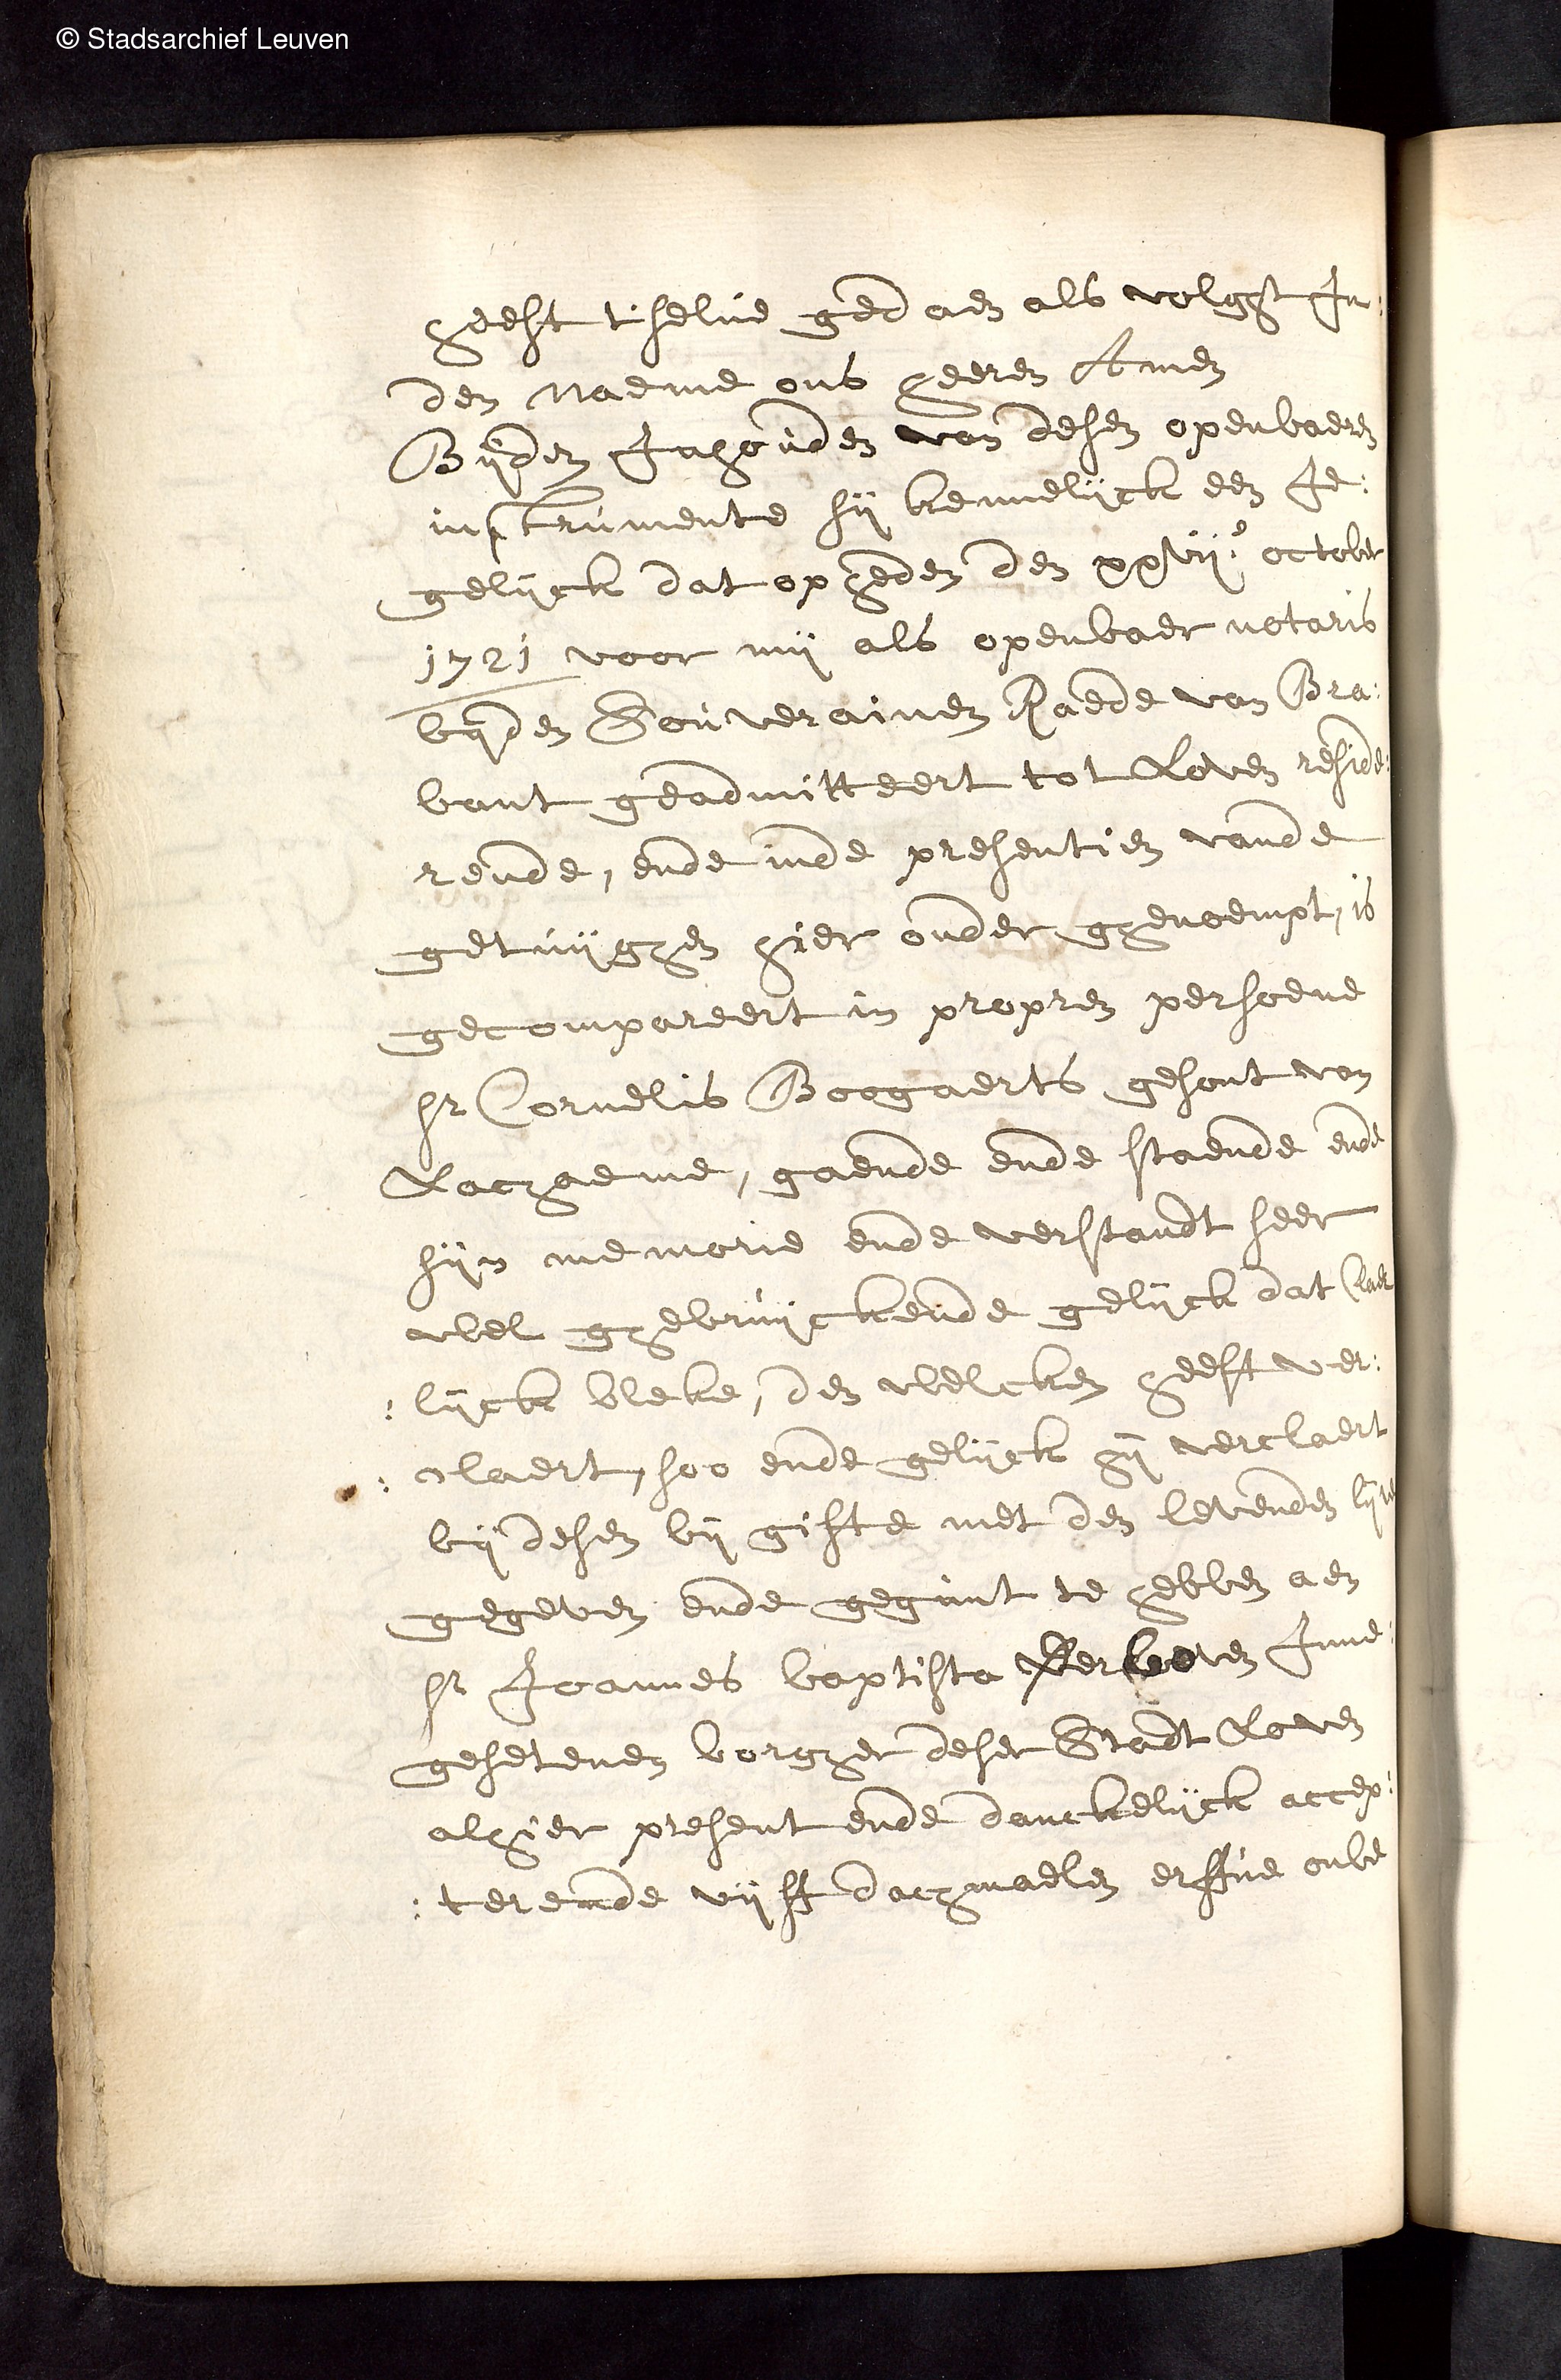 © Stadsarchief Leuven
heeft t'selve gedaen als volght In:
den naeme ons heeren Amen
Bijden Inhouden van desen openbaeren
instrumente sij kennelijck een Ie:
gelijck dat op heden den xxvij.e october
1721 voor mij als openbaer notaris
bijden Souverainen Raede van Bra:
bant geadmitteert tot Loven reside:
rende, ende inde presentien vande
getuijghen hier onder ghenoempt, is
gecompareert in propren persoene
sr Cornelis Boogaerts gesont van
Lachaeme, gaende ende staende ende
sijn memorie ende verstandt seer
wel ghebruijckende gelijck dat claer
:lijck bleke, den welcken heeft ver:
:claert, soo ende gelijck hij verclaert
bij desen bij gifte met den levenden lijve
gegeven ende gegunt te hebben aen
sr Joannes baptista Verhoven Inne:
gesetenen borgher deser Stadt Loven
alhier present ende danckelijck accep:
:terende vijff dachmaelen erffve onbe